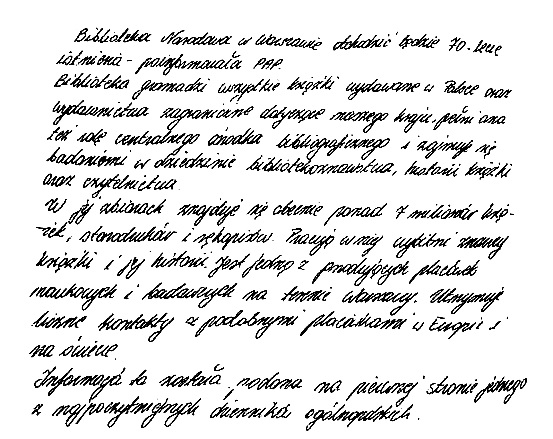 Biblioteka Narodowa w Warszawie obchodzić będzie 70-lecie
istnienia - poinformowała PAP.
Biblioteka gromadzi wszystkie książki wydawane w Polsce oraz
wydawnictwa zagraniczne dotyczące naszego kraju. Pełni ona
też rolę centralnego ośrodka bibliograficznego i zajmuje się
badaniami w dziedzinie bibliotekoznawstwa, historii książki
oraz czytelnictwa.
W jej zbiorach znajduje się obecnie ponad 7 milionów ksią-
-żek, starodruków i rękopisów. Pracują w niej wybitni znawcy
książki i jej historii. Jest jedną z przodujących placówek
naukowych i badawczych na terenie Warszawy. Utrzymuje
liczne kontakty z podobnymi placówkami w Europie i
na świecie.
Informacja ta została podana na pierwszej stronie jednego
z najpoczytniejszych dzienników ogólnopolskich.